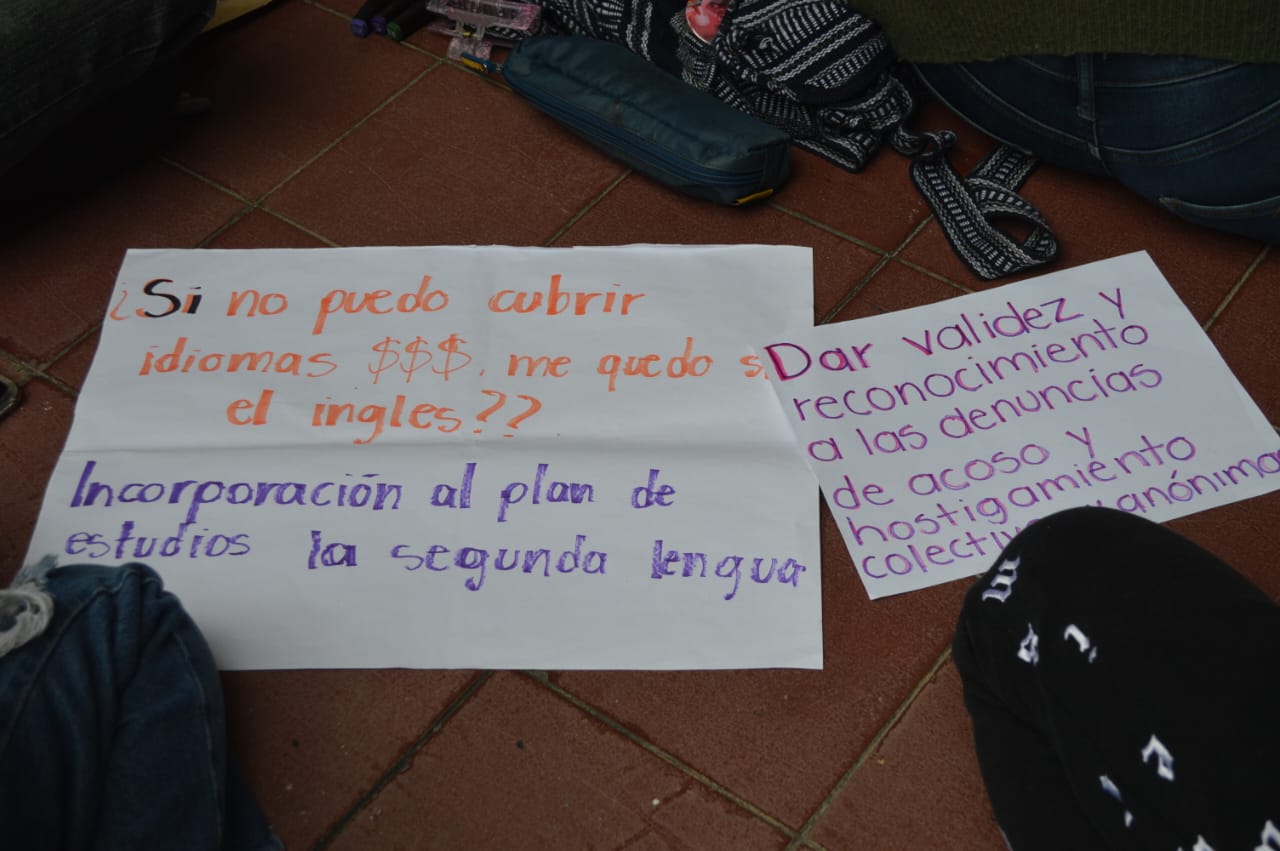 ¿Si no puedo cubrir
idiomas $$$, me quedo
el ingles??
Incorporación al plan de
estudios la segunda lengua
Dar validez y
reconocimiento
a las denuncias
de acoso y
hostigamiento
anónima